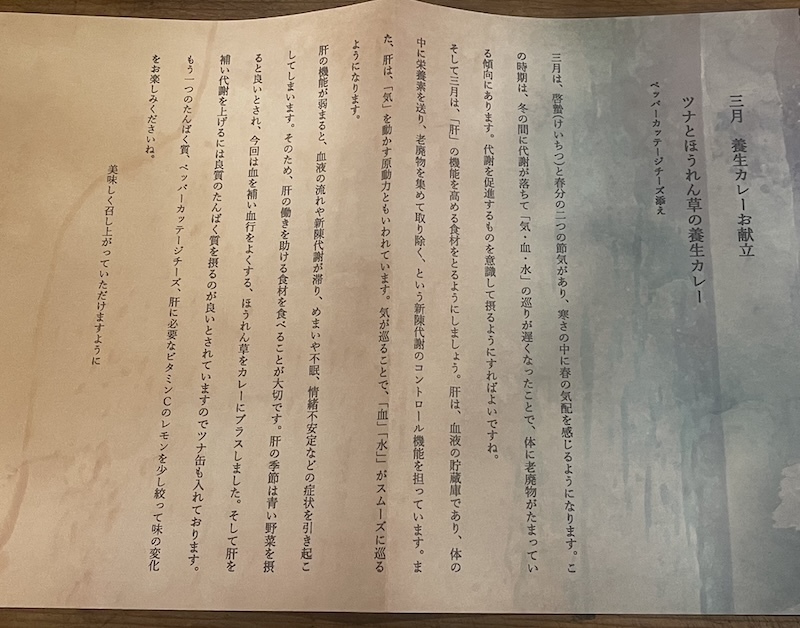 三月　養生カレーお献立
ツナとほうれん草の養生カレー
ペッパーカッテージチーズ添え
三月は、啓蟄(けいちつ)と春分の二つの節気があり、寒さの中に春の気配を感じるようになります。こ
の時期は、冬の間に代謝が落ちて「気・血・水」の巡りが遅くなったことで、体に老廃物がたまってい
る傾向にあります。代謝を促進するものを意識して摂るようにすればよいですね。
そして三月は、「肝」の機能を高める食材をとるようにしましょう。肝は、血液の貯蔵庫であり、体の
中に栄養素を送り、老廃物を集めて取り除く、という新陳代謝のコントロール機能を担っています。ま
た、肝は、「気」を動かす原動力ともいわれています。気が巡ることで、「血」「水」」がスムーズに巡る
ようになります。
肝の機能が弱まると、血液の流れや新陳代謝が滞り、めまいや不眠、情緒不安定などの症状を引き起こ
してしまいます。そのため、肝の働きを助ける食材を食べることが大切です。肝の季節は青い野菜を摂
ると良いとされ、今回は血を補い血行をよくする、ほうれん草をカレーにプラスしました。そして肝を
補い代謝を上げるには良質のたんぱく質を摂るのが良いとされていますのでツナ缶も入れております。
もう一つのたんぱく質、ペッパーカッテージチーズ、肝に必要なビタミンCのレモンを少し絞って味の変化
をお楽しみくださいね。
美味しく召し上がっていただけますように